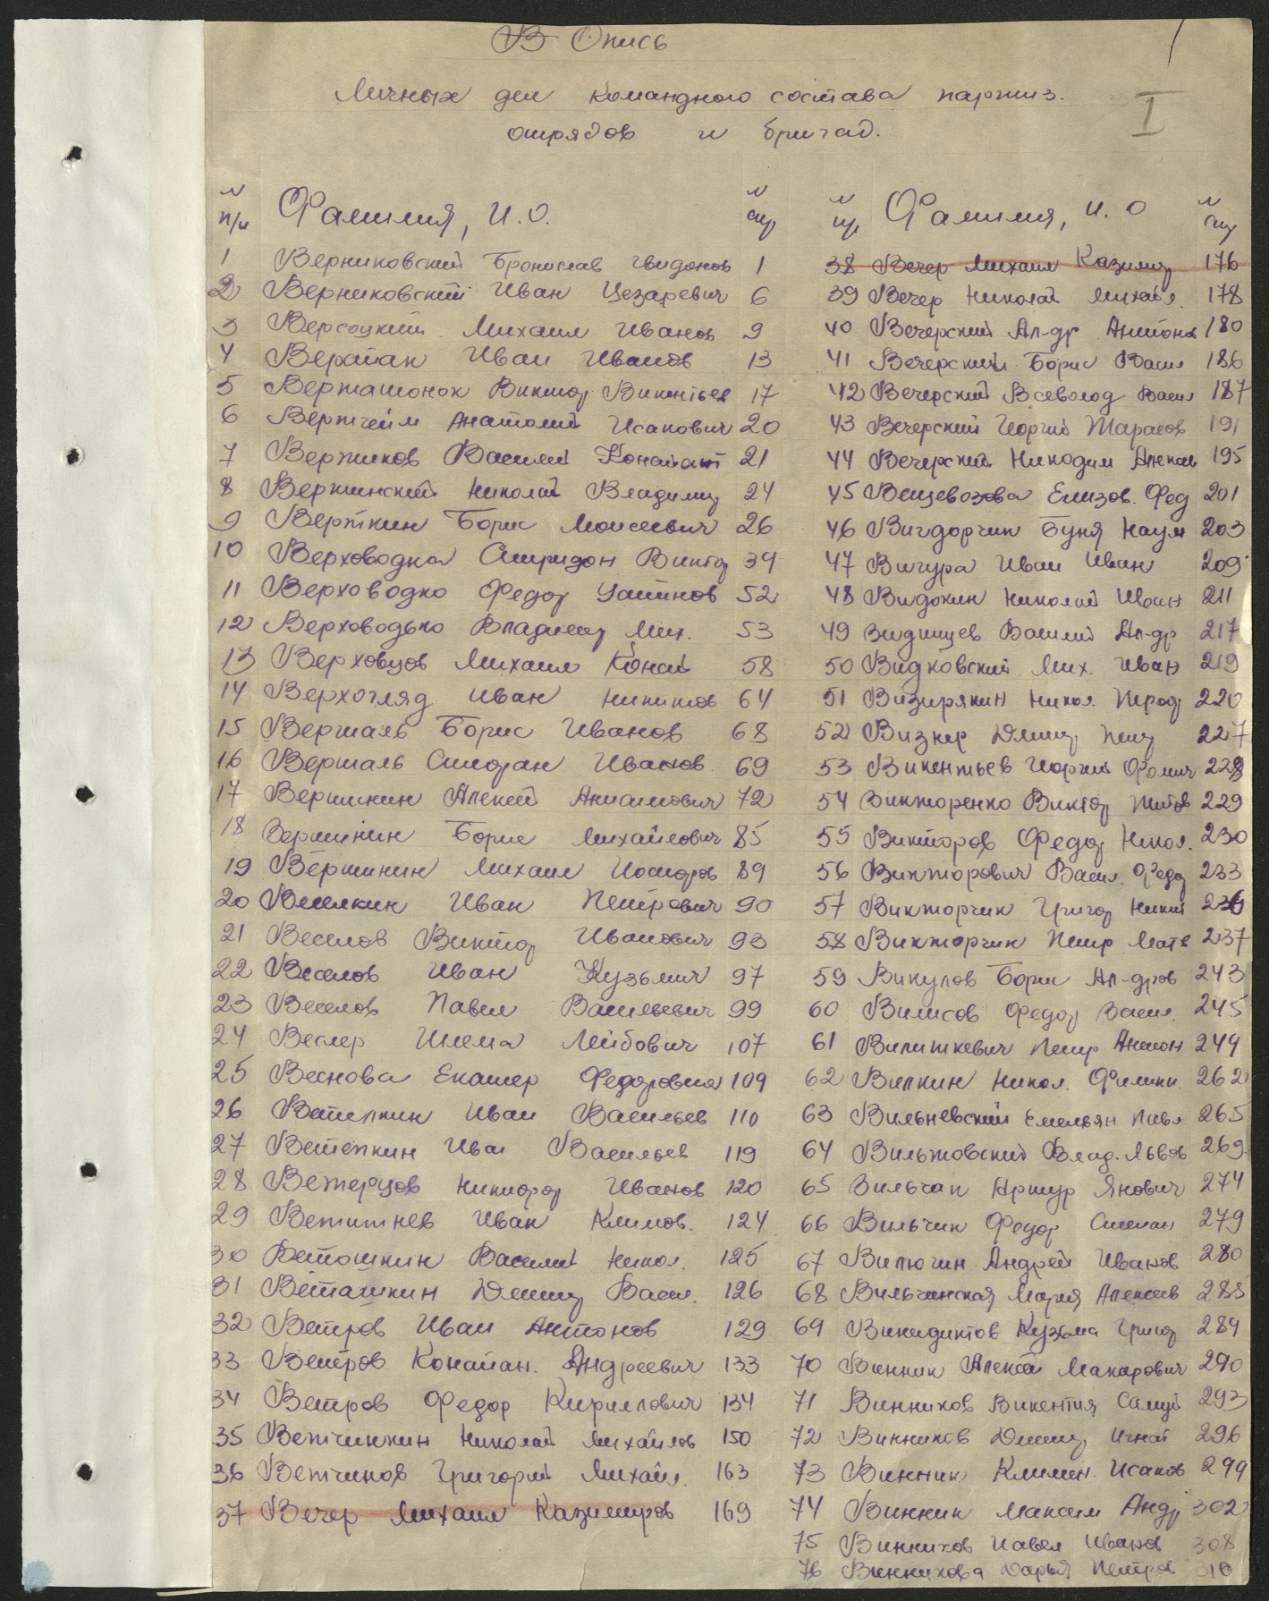 В Опись
Личных дел командного состава партиз.
отрядов и бригад.
I
N п/п Фамилия, И.О. N стр
1 Верниковский Бронислав Гвидонов 1
2 Верниковский Иван Цезаревич 6
3 Версоцкий Михаил Иванов 9
4 Верстак Иван Иванов 13
5 Верташонок Виктор Викентьев 17
6 Вертгейм Анатолий Исакович 20
7 Вертиков Василий Констант 21
8 Вертинский Николай Владимир 24
9 Верткин Борис Моисеевич 26
10 Верховодка Спиридон Виктор 39
11 Верховодко Федор Устинов 52
12 Верховодько Владимир Мих. 53
13 Верховцов Михаил Конст 58
14 Верхогляд Иван Никитов 64
15 Вершаль Борис Иванов 68
16 Вершаль Степан Иванов 69
17 Вершинин Алексей Анисимович 72
18 Вершинин Борис Михайлович 85
19 Вершинин Михаил 89
20 Веселкин Иван Петрович 90
21 Веселов Виктор Иванович 93
22 Веселов Иван Кузьмич 97
23 Веселов Павел Васильевич 99
24 Веслер Шлема Лейбович 107
25 Веснова Екатер Федоровна 109
26 Ветелкин Иван Васильев 110
27 Ветелкин Иван Васильев 119
28 Ветерцов Никифор Иванов 120
29 Ветитнев Иван Климов. 124
30 Ветошкин Василий Никол. 125
31 Веташкин Дмитр Васил. 126
32 Ветров Иван Антонов 129
33 Ветров Констан. Андреевич 133
34 Ветров Федор Кириллович 134
35 Ветчинкин Николай Михайлов 150
36 Ветчинов Григорий Михайл. 163
37 Вечер Михаил Казимиров 169
N п/п Фамилия, И.О N стр
38 Вечер Михаил Казимир 176
39 Вечер Николай Михайл. 178
40 Вечерский Ал-др Антонов 180
41 Вечерский Борис Васил 186
42 Вечерский Всеволод Васил 187
43 Вечерский Георгий Тарасов 191
44 Вечерский Никодим Алексее 195
45 Вещевозова Елизов. Фед 201
46 Вигдорчик Буня Наум 203
47 Вигура Иван Иван 209
48 Видокин Николай Иван 211
49 Видищев Василий Ал-др 217
50 Видковский Мих. Иван 219
51 Визирякин Никол. 220
52 Визнер Дмитр Петр 227
53 Викентьев Георгий Фомич 228
54 Викторенко Виктор Титов 229
55 Викторов Федор Никол. 230
56 Викторович Васил. Федор 233
57 Викторчик Григор Никит 236
58 Викторчик Петр Матв 237
59 Викулов Борис Ал-дров 243
60 Вилисов Федор Васил. 245
61 Вилиткевич Петр Антон 249
62 Вилкин Никол. Филипп. 262
63 Вильневский Емельян Павл 265
64 Вильтовский Влад. Львов 269
65 Вильчак Артур Янович 274
66 Вильчик Федор Степан 279
67 Вилюгин Андрей Иванов 280
68 Вильчинская Мария Алексеев 285
69 Винидиктов Кузьма Григор 289
70 Винник Алексей Макарович 290
71 Винников Викентия Самуил 293
72 Винников Дмитр Игнат 296
73 Винник Климен. Исаков 299
74 Винник Максим Андр 302
75 Винников Павел Иванов 308
76 Винникова Дарья Петров 310